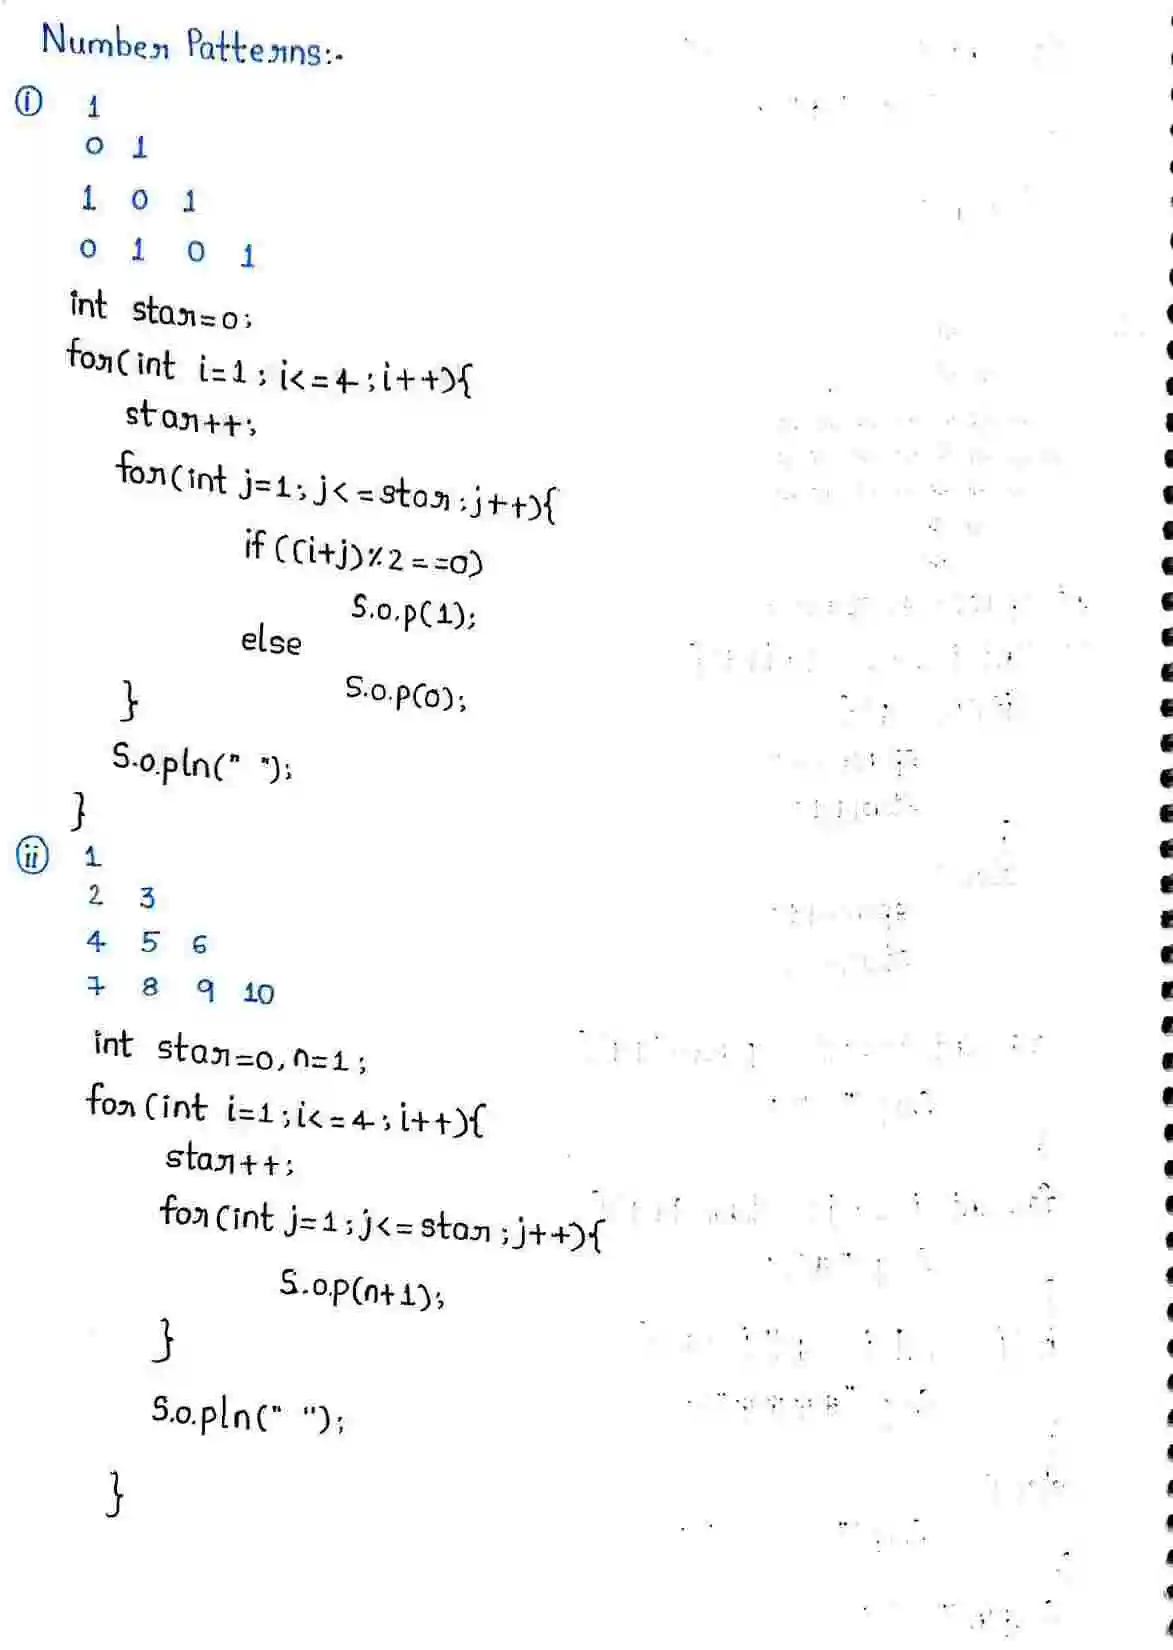 Number Patterns:-
(i) 1
0 1
1 0 1
0 1 0 1
int star=0;
for(int i=1; i<=4; i++){
star++;
for(int j=1; j<=star; j++){
if((i+j)%2==0)
S.o.p(1);
else
S.o.p(0);
}
S.o.pln(" ");
}
(ii) 1
2 3
4 5 6
7 8 9 10
int star=0, n=1;
for(int i=1; i<=4; i++){
star++;
for(int j=1; j<=star; j++){
S.o.p(n+1);
}
S.o.pln(" ");
}